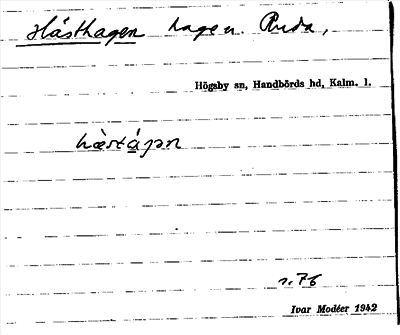 Hästhagen hage n. Ruda,
Högsby sn, Handbörds hd, Kalm. l.
hæ̀stáɡən
s. 76
Ivar Modéer 1942